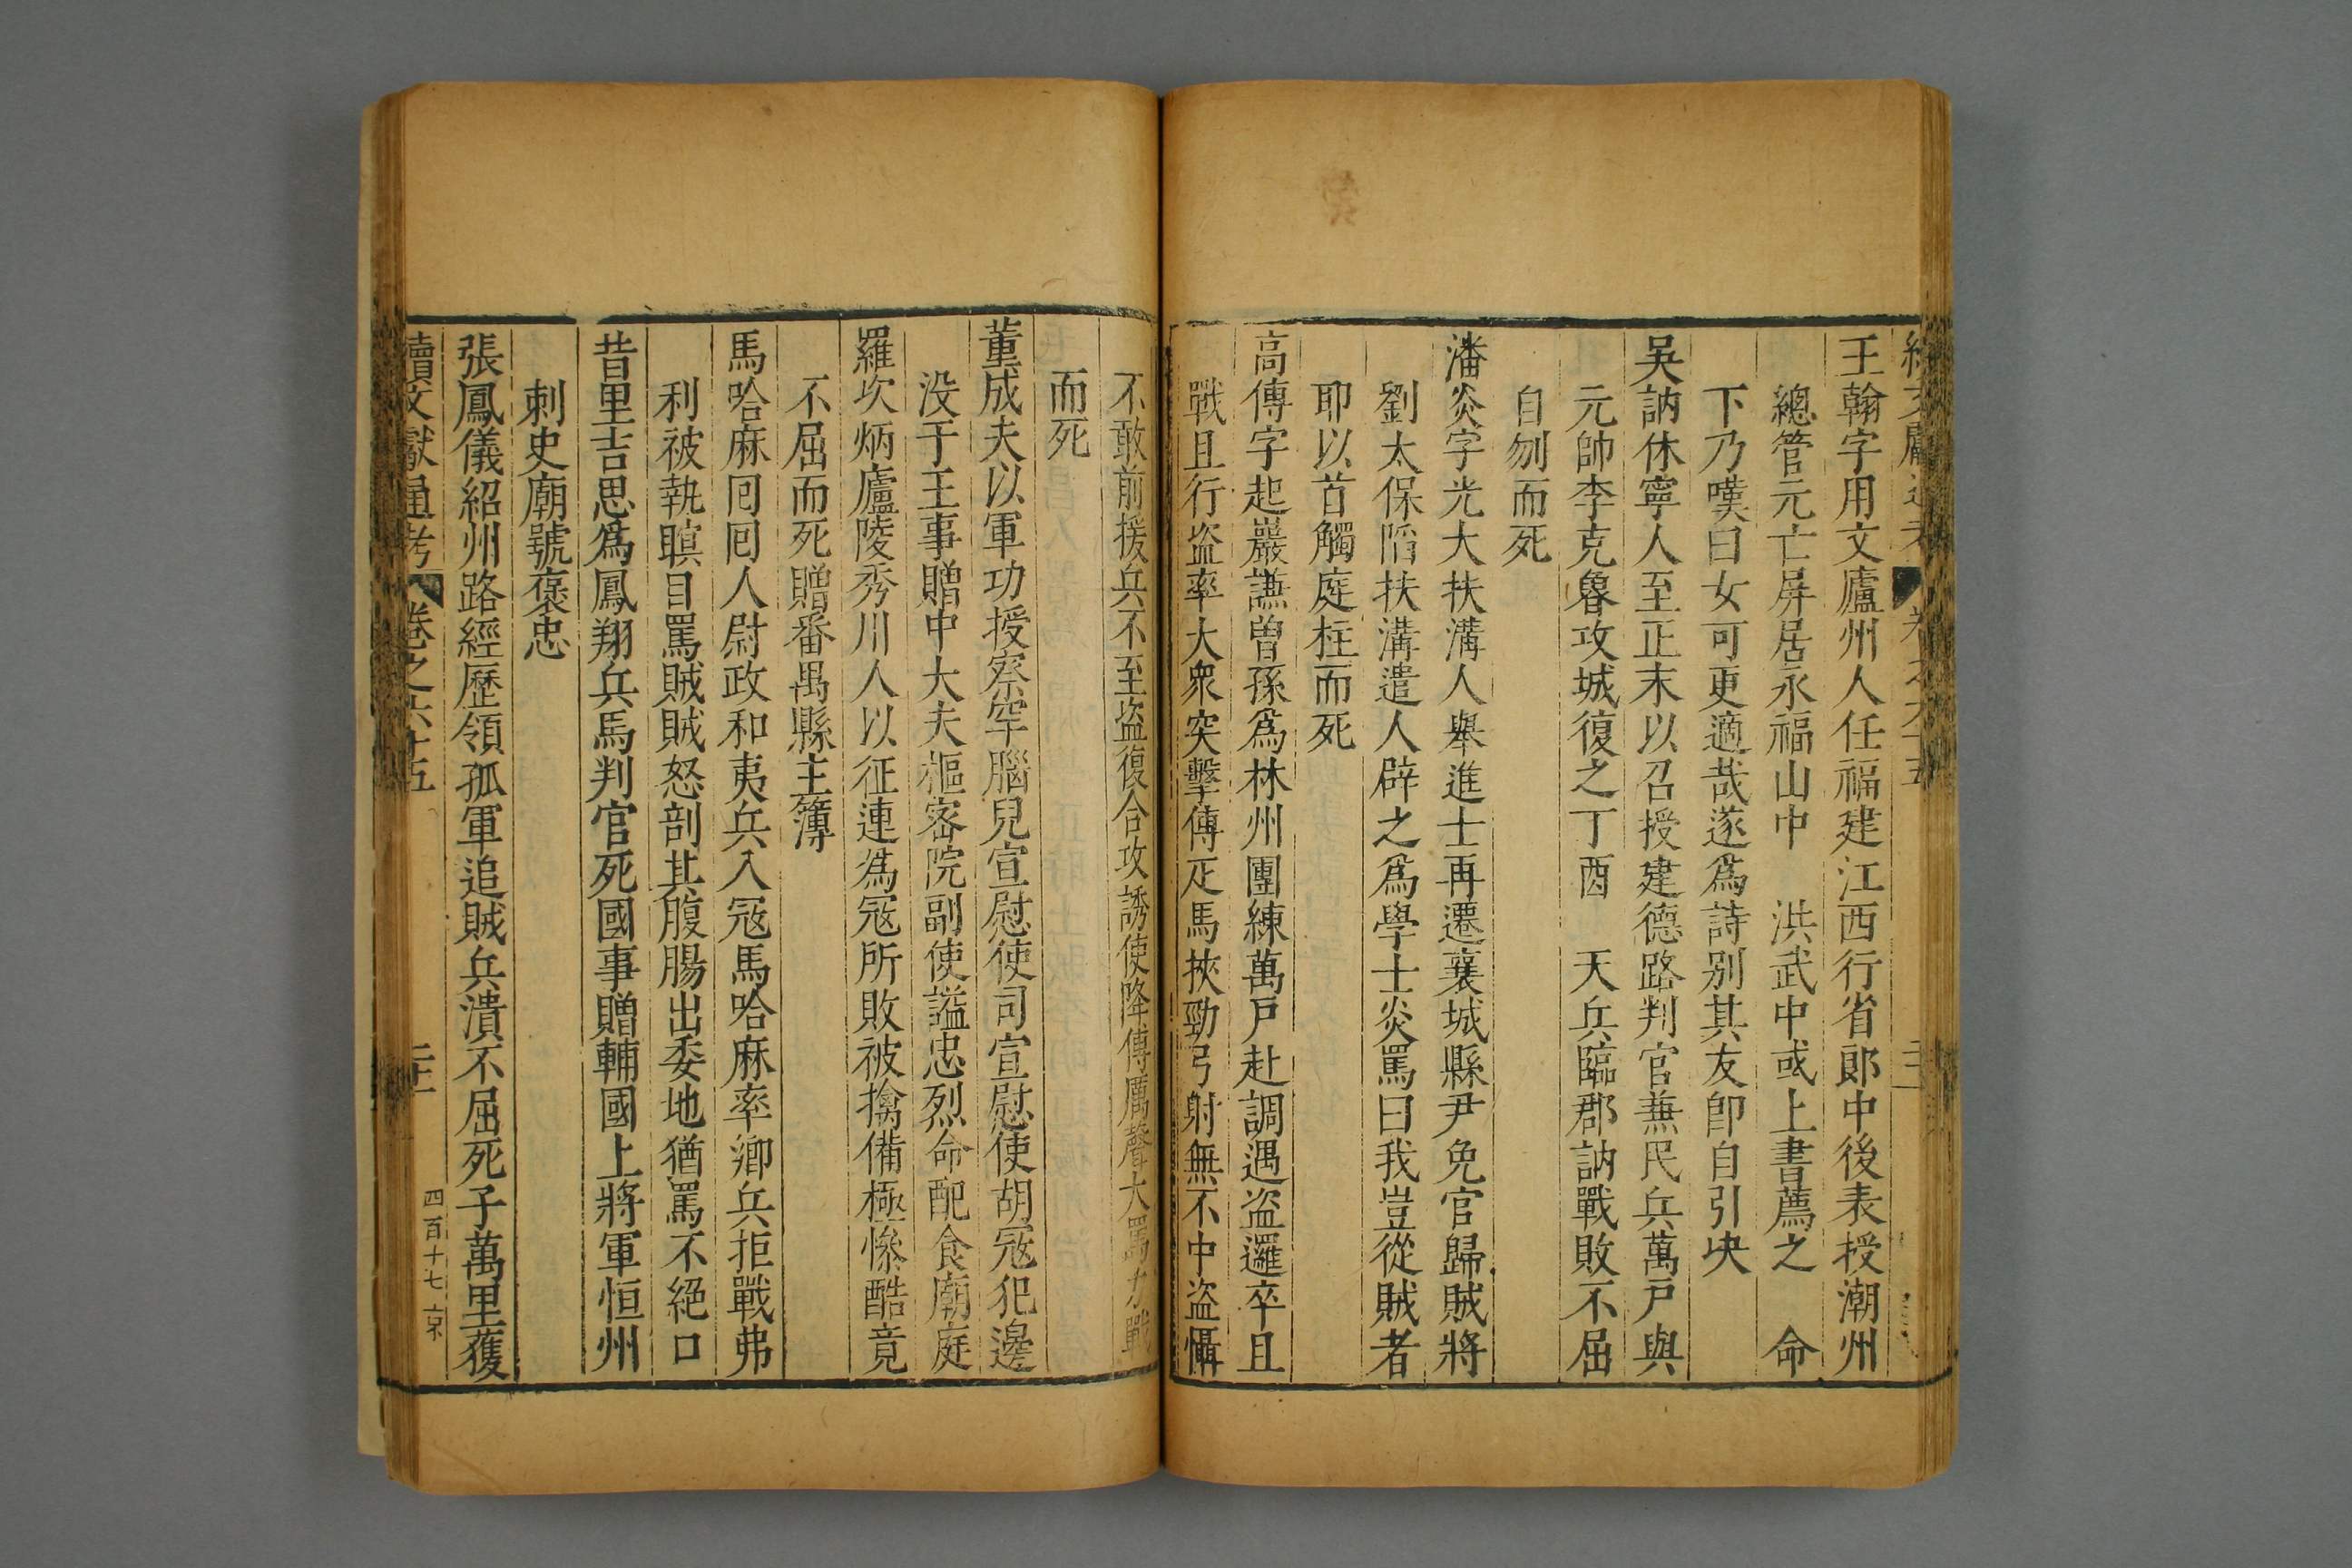 王翰字用文廬州人任福建江西行省郎中後表授潮州
總管元亡屏居永福山中 洪武中或上書薦之 命
下乃嘆曰女可更適哉遂爲詩别其友卽自引决
吳訥休寧人至正末以召授建德路判官蕪民兵萬戸與
元帥李克魯攻城復之丁酉 天兵臨郡訥戰敗不屈
自刎而死
潘炎字光大扶溝人舉進士再遷襄城縣尹免官歸賊將
劉太保陷扶溝遣人辟之爲學士炎罵曰我豈從賊者
耶以首觸庭柱而死
高傳字起巖謙曾孫爲林州團練萬戸赴調遇盗邏卒且
戰且行盗率大衆突擊傳疋馬挾勁弓射無不中盗懾
不敢前援兵不至盗復合攻誘使降傳厲聲大罵力戰
而死
董成夫以軍功授察罕腦兒宣慰使司宣慰使胡冦犯邊
没于王事贈中大夫樞宻院副使謚忠烈命配食廟庭
羅坎炳廬陵秀川人以征連爲冦所敗被擒備極慘酷竟
不屈而死贈番禺縣主簿
馬哈麻囘囘人尉政和夷兵入冦馬哈麻率鄉兵拒戰弗
利被執瞋目罵賊賊怒剖其腹腸出委地猶罵不絕口
昔里吉思爲鳳翔兵馬判官死國事贈輔國上將軍恒州
刺史廟號褒忠
張鳳儀紹州路經歷領孤軍追賊兵潰不屈死子萬里獲
續文獻通考 卷之六十五 二十二
四百十七